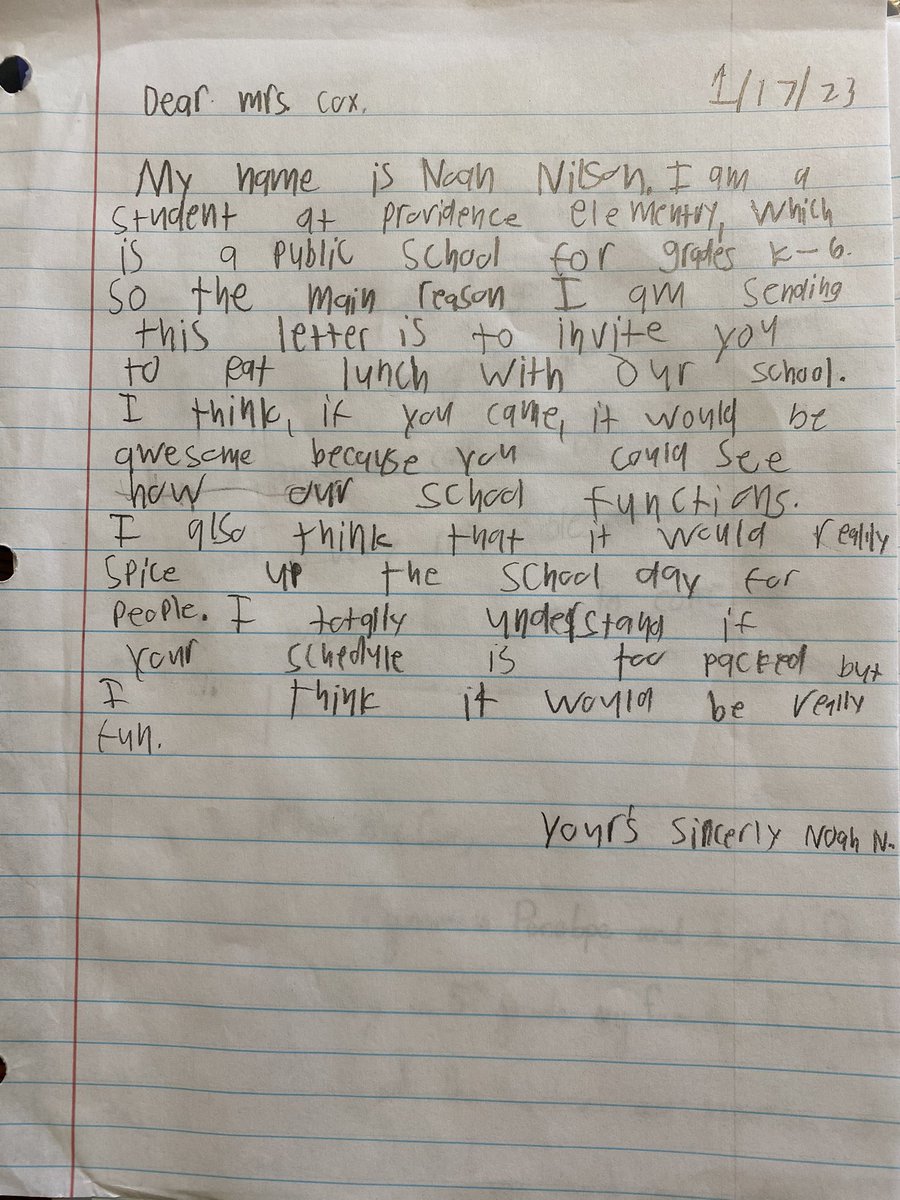 Dear mrs. cox, 1/17/23
My name is Noah Nilson. I am a
student at providence elementry, which
is a public school for grades k-6.
so the main reason I am sending
this letter is to invite you
to eat lunch with our school.
I think, if you came, it would be
awesome because you could see
how our school functions.
I also think that it would really
spice up the school day for
people. I totally understand if
your schedule is too packed but
I think it would be really
fun.
Your's sincerly Noah N.